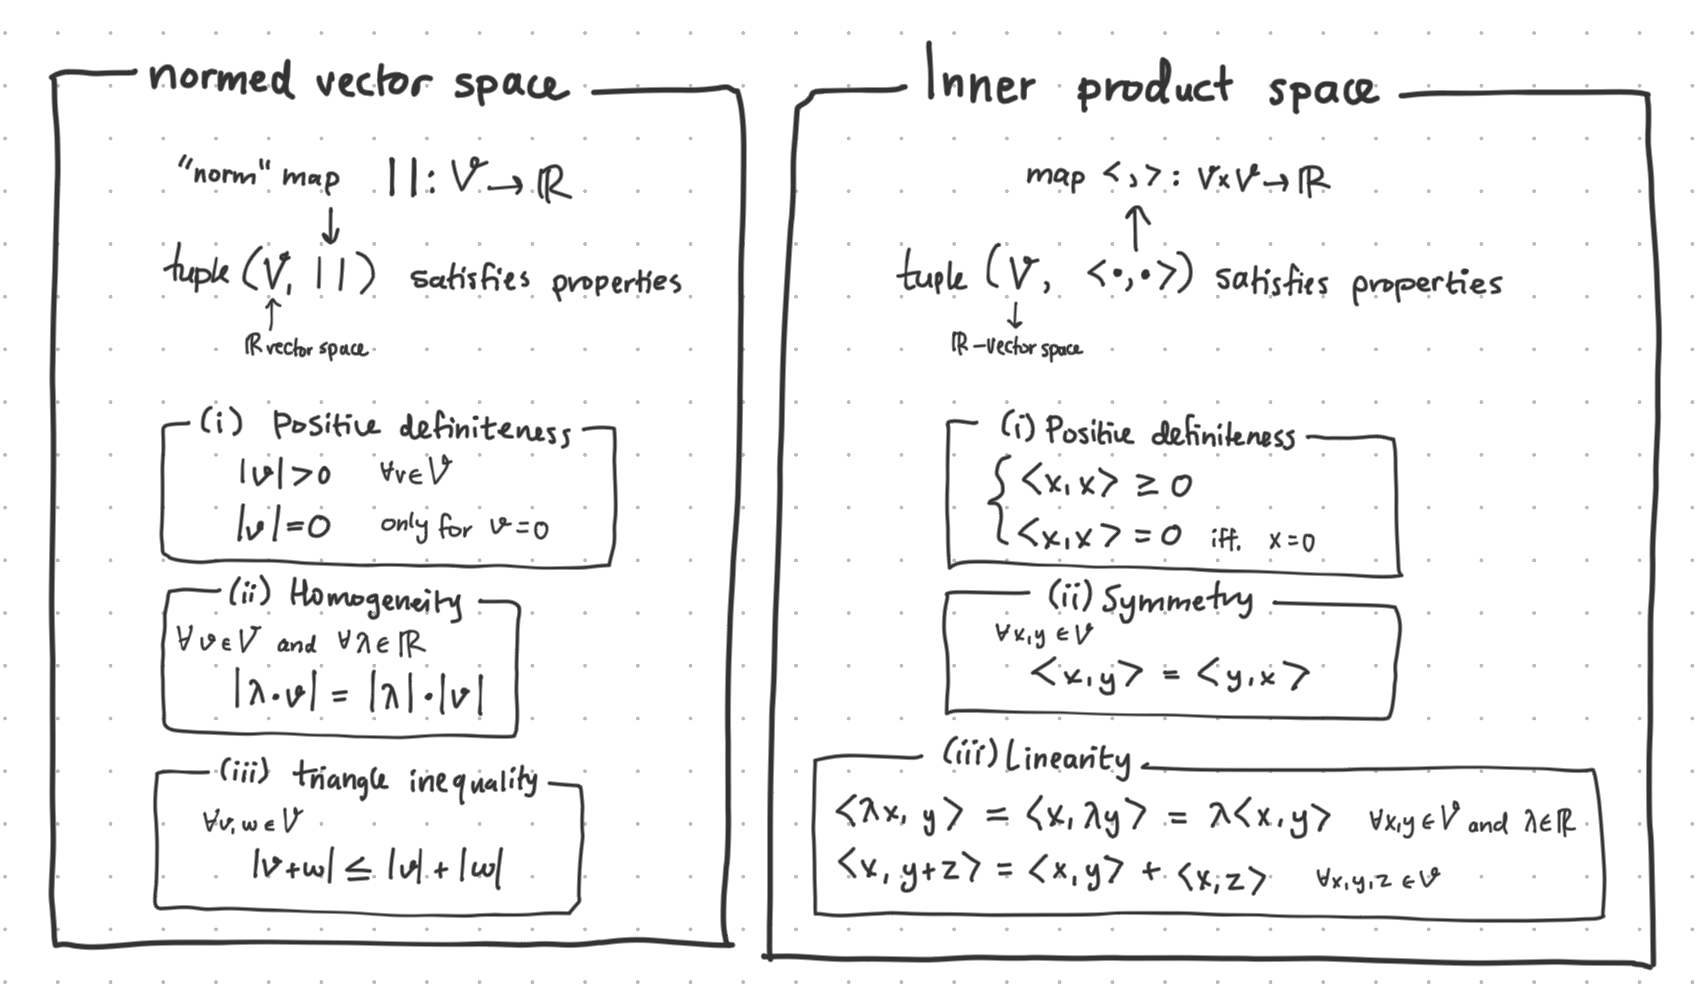 normed vector space
"norm" map | |: V → ℝ
tuple (V, | |) satisfies properties
ℝ vector space
(i) Positive definiteness
|v| > 0 ∀v∈V
|v| = 0 only for v=0
(ii) Homogeneity
∀v∈V and ∀λ∈ℝ
|λ·v| = |λ|·|v|
(iii) triangle inequality
∀v,w∈V
|v+w| ≤ |v| + |w|
Inner product space
map <,>: V×V → ℝ
tuple (V, <•,•>) satisfies properties
ℝ-vector space
(i) Positive definiteness
<x,x> ≥ 0
<x,x> = 0 iff. x=0
(ii) Symmetry
∀x,y ∈V
<x,y> = <y,x>
(iii) Linearity
<λx, y> = <x, λy> = λ<x,y> ∀x,y∈V and λ∈ℝ
<x, y+z> = <x,y> + <x,z> ∀x,y,z ∈V